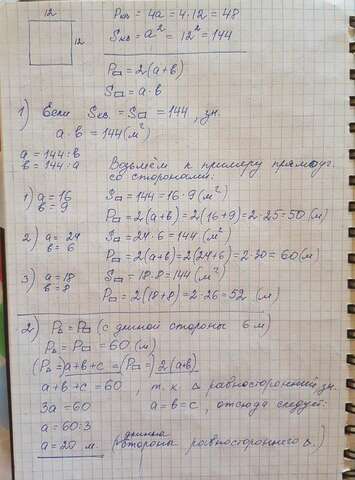 12
12
Pкв = 4a = 4·12 = 48
Sкв = a² = 12² = 144
P▭ = 2(a+в)
S▭ = a·в
1) Если Sкв. = S▭ = 144, зн.
a·в = 144 (м²)
a = 144:в
в = 144:a
Возьмём к примеру прямоуг.
со сторонами:
1) a = 16
в = 9
S▭ = 144 = 16·9 (м²)
P▭ = 2(a+в) = 2(16+9) = 2·25 = 50 (м)
2) a = 24
в = 6
S▭ = 24·6 = 144 (м²)
P▭ = 2(a+в) = 2(24+6) = 2·30 = 60 (м)
3) a = 18
в = 8
S▭ = 18·8 = 144 (м²)
P▭ = 2(18+8) = 2·26 = 52 (м)
2) P▵ = P▭ (с длиной стороны 6 м)
P▵ = P▭ = 60 (м)
(P▵ =) a+в+с = (P▭ =) 2(a+в)
a+в+с = 60, т.к ▵ равносторонний, зн.
3a = 60 a=в=с, отсюда следует:
a = 60:3
a = 20 м. (длина стороны равностороннего ▵.)